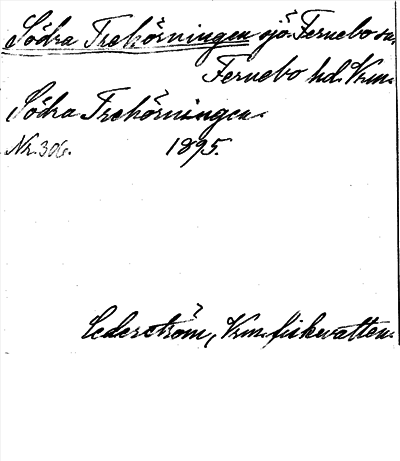 Södra Trehörningen sjö. Fernebo sn.
Fernebo hd. Vrm.
Södra Trehörningen.
Nr. 306. 1895.
Cederström, Vrm. fiskevatten.